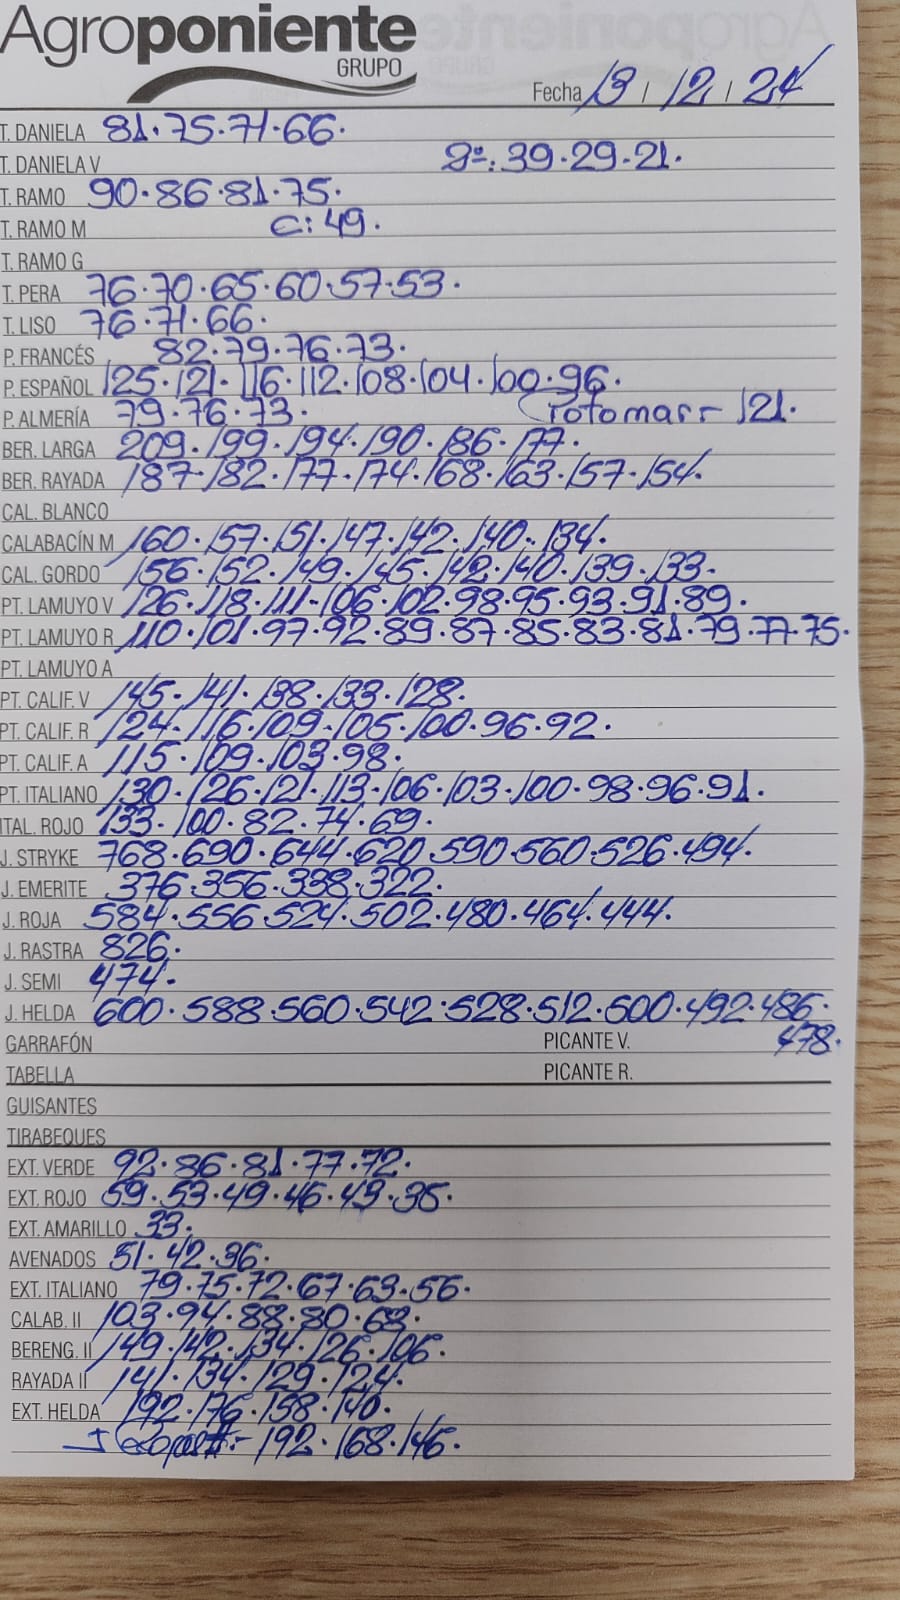 Agroponiente
GRUPO
Fecha 13 / 12 / 24
T. DANELA 81·75·71·66·
T. DANIELA V 2ª: 39·29·21·
T. RAMO 90·86·81·75·
T. RAMO M C: 49·
T. RAMO G
T. PERA 76·70·65·60·57·53·
T. LISO 76·71·66·
P. FRANCÉS 82·79·76·73·
P. ESPAÑOL 125·121·116·112·108·104·100·96·
P. ALMERÍA 79·76·73· 121·
BER. LARGA 209·199·194·190·186·177·
BER. RAYADA 187·182·177·174·168·163·157·154·
CAL. BLANCO
CALABACÍN M 160·157·151·147·142·140·134·
CAL. GORDO 156·152·149·145·142·140·139·133·
PT. LAMUYO V 126·118·111·106·102·98·95·93·91·89·
PT. LAMUYO R 110·101·97·92·89·87·85·83·81·79·77·75·
PT. LAMUYO A
PT. CALIF. V 145·141·138·133·128·
PT. CALIF. R 124·116·109·105·100·96·92·
PT. CALIF. A 115·109·103·98·
PT. ITALIANO 130·126·121·113·106·103·100·98·96·91·
ITAL. ROJO 133·100·82·74·69·
J. STRYKE 768·690·644·620·590·560·526·494·
J. EMERITE 376·356·338·322·
J. ROJA 584·556·524·502·480·464·444·
J. RASTRA 826·
J. SEMI 474·
J. HELDA 600·588·560·542·528·512·500·492·486·
GARRAFÓN PICANTE V. 478·
TABELLA PICANTE R.
GUISANTES
TIRABEQUES
EXT. VERDE 92·86·81·77·72·
EXT. ROJO 59·53·49·46·43·35·
EXT. AMARILLO 33·
AVENADOS 51·42·36·
EXT. ITALIANO 79·75·72·67·63·56·
CALAB. II 103·94·88·80·68·
BERENG. II 149·142·134·126·106·
RAYADA II 141·134·129·124·
EXT. HELDA 192·176·158·140·
192·168·146·